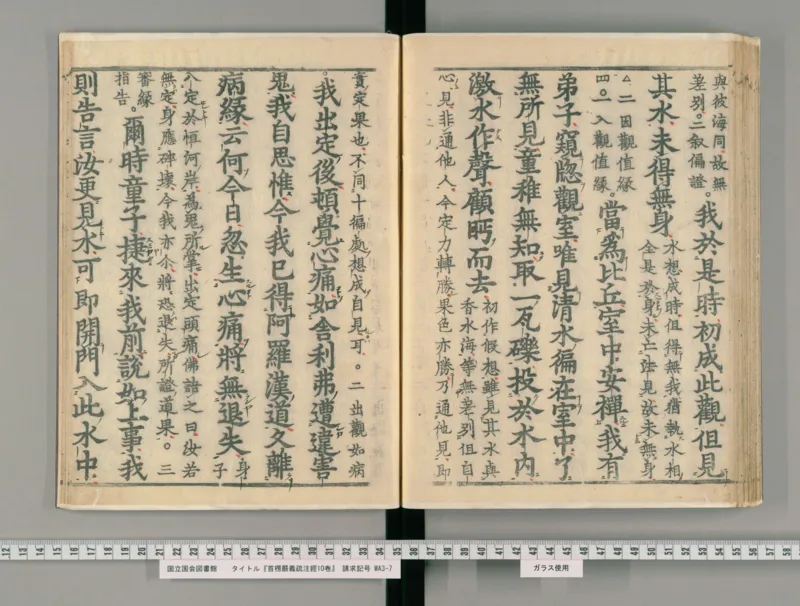 與彼海同故無
差別。二叙偏證。
我於是時初成此觀但見
其水未得無身
水想成時但得無我猶執水相
全是於身未亡法見故未無身
△二因觀值緣
四。一入觀值緣
當為比丘室中安禪我有
弟子窺牎觀室唯見清水徧在室中了
無所見童稚無知取一瓦礫投於水內
激水作聲顧眄而去
初作假想雖見其水與
香水海等無差別但自
心見非通他人今定力轉勝果色亦勝乃通他見即
實定果也不同十徧處想成自見可。二出觀如病
我出定後頓覺心痛如舍利弗遭違害
鬼我自思惟今我已得阿羅漢道久離
病緣云何今日忽生心痛將無退失
身
子
入定於恒河岸為鬼所擊出定頭痛佛語之曰汝若
無定身應碎壞今我亦尒將恐退失所證道果。三
審緣
指告。
爾時童子捷來我前說如上事我
則告言汝更見水可即開門入此水中
12 13 14 15 16 17 18 19 20 21 22 23 24 25 26 27 28 29 30 31 32 33 34 35 36 37 38 39 40 41 42 43 44 45 46 47 48 49 50 51 52 53 54 55 56 57 58
国立国会図書館 タイトル『首楞嚴義疏注經10卷』 請求記号 WA3-7
ガラス使用